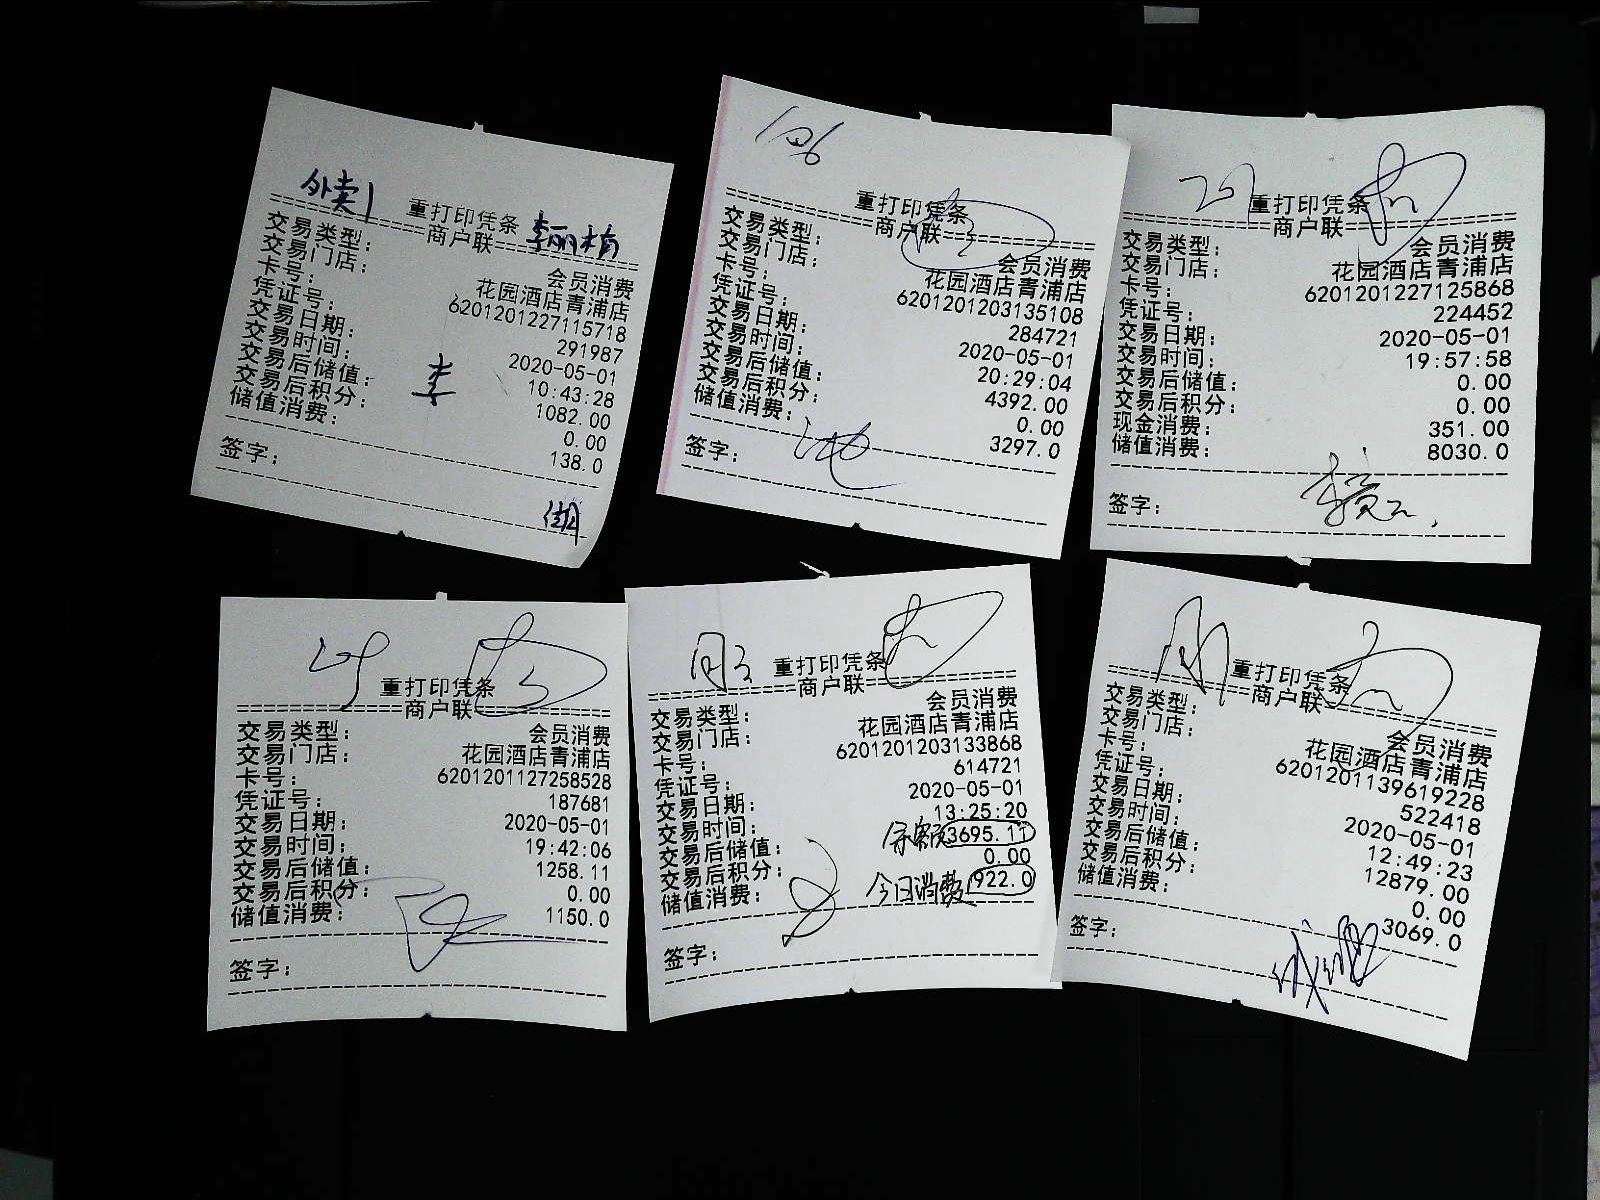 外卖1
重打印凭条
李丽梅
商户联
交易类型: 会员消费
交易门店: 花园酒店青浦店
卡号: 6201201227115718
凭证号: 291987
交易日期: 2020-05-01
交易时间: 10:43:28
交易后储值: 1082.00
交易后积分: 0.00
储值消费: 138.0
李
签字:
106
重打印凭条
商户联
交易类型: 会员消费
交易门店: 花园酒店青浦店
卡号: 6201201203135108
凭证号: 284721
交易日期: 2020-05-01
交易时间: 20:29:04
交易后储值: 4392.00
交易后积分: 0.00
储值消费: 3297.0
签字:
重打印凭条
商户联
交易类型: 会员消费
交易门店: 花园酒店青浦店
卡号: 6201201227125868
凭证号: 224452
交易日期: 2020-05-01
交易时间: 19:57:58
交易后储值: 0.00
交易后积分: 0.00
现金消费: 351.00
储值消费: 8030.0
签字:
重打印凭条
商户联
交易类型: 会员消费
交易门店: 花园酒店青浦店
卡号: 6201201127258528
凭证号: 187681
交易日期: 2020-05-01
交易时间: 19:42:06
交易后储值: 1258.11
交易后积分: 0.00
储值消费: 1150.0
签字:
重打印凭条
商户联
交易类型: 会员消费
交易门店: 花园酒店青浦店
卡号: 6201201203133868
凭证号: 614721
交易日期: 2020-05-01
交易时间: 13:25:20
交易后储值: 余额 3695.11
交易后积分: 0.00
储值消费: 今日消费 922.0
签字:
重打印凭条
商户联
交易类型: 会员消费
交易门店: 花园酒店青浦店
卡号: 6201201139619228
凭证号: 522418
交易日期: 2020-05-01
交易时间: 12:49:23
交易后储值: 12879.00
交易后积分: 0.00
储值消费: 3069.0
签字: